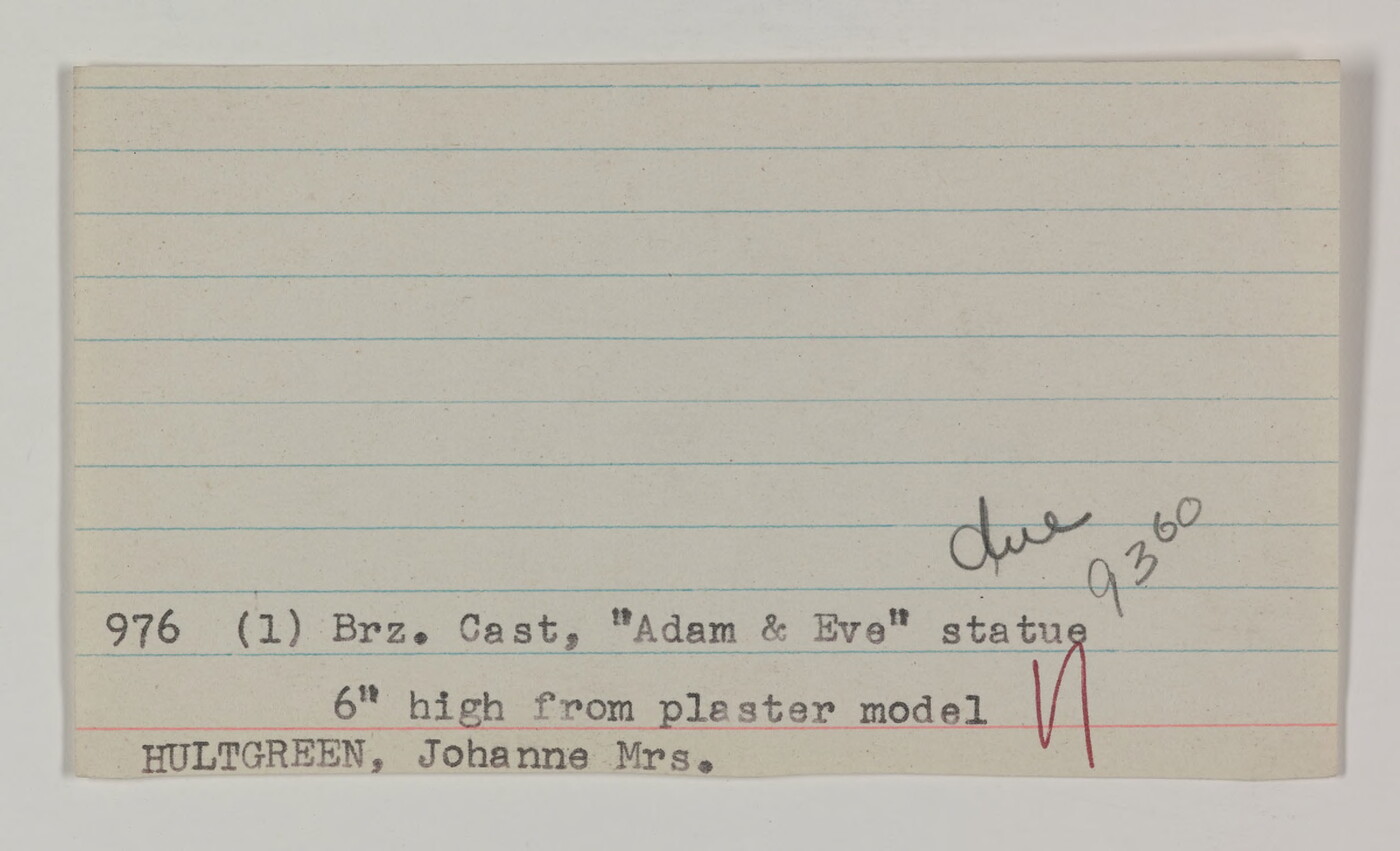 due
93 60
976 (1) Brz. Cast, "Adam & Eve" statue
6" high from plaster model
HULTGREEN, Johanne Mrs.